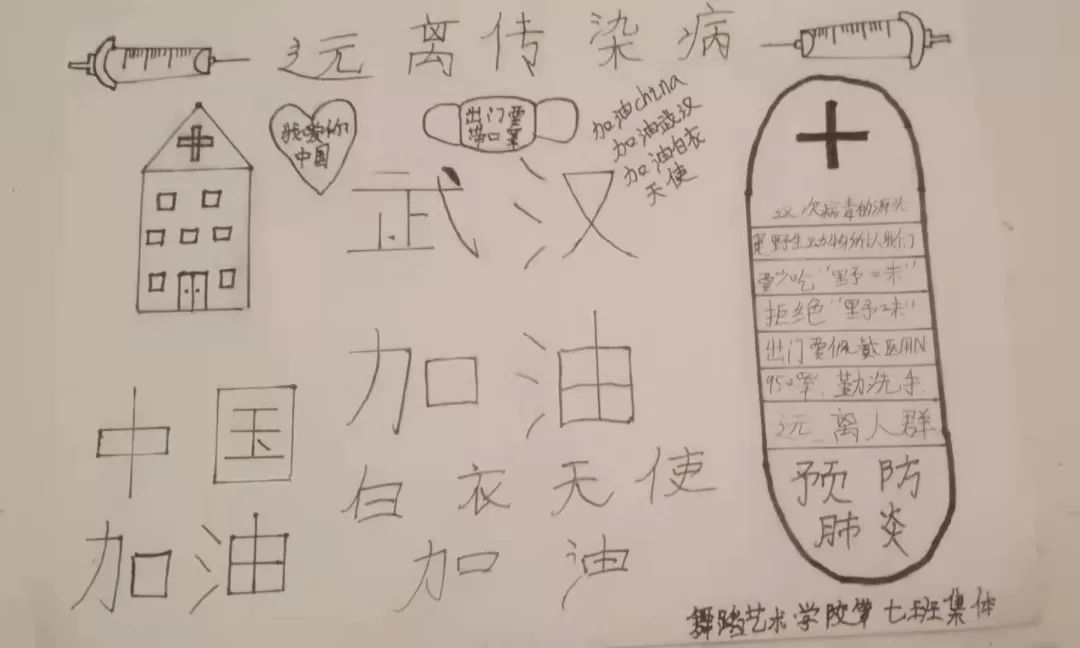 远离传染病
我爱你
中国
出门要
带口罩
加油china
加油武汉
加油白衣
天使
武汉
加油
中国
加油
白衣天使
加油
这次病毒的源头
是野生动物你人我们
要少吃“野味”
拒绝“野味”
出门要佩戴医用N
95口罩,勤洗手.
远离人群
预防
肺炎
舞蹈艺术学院第七班集体